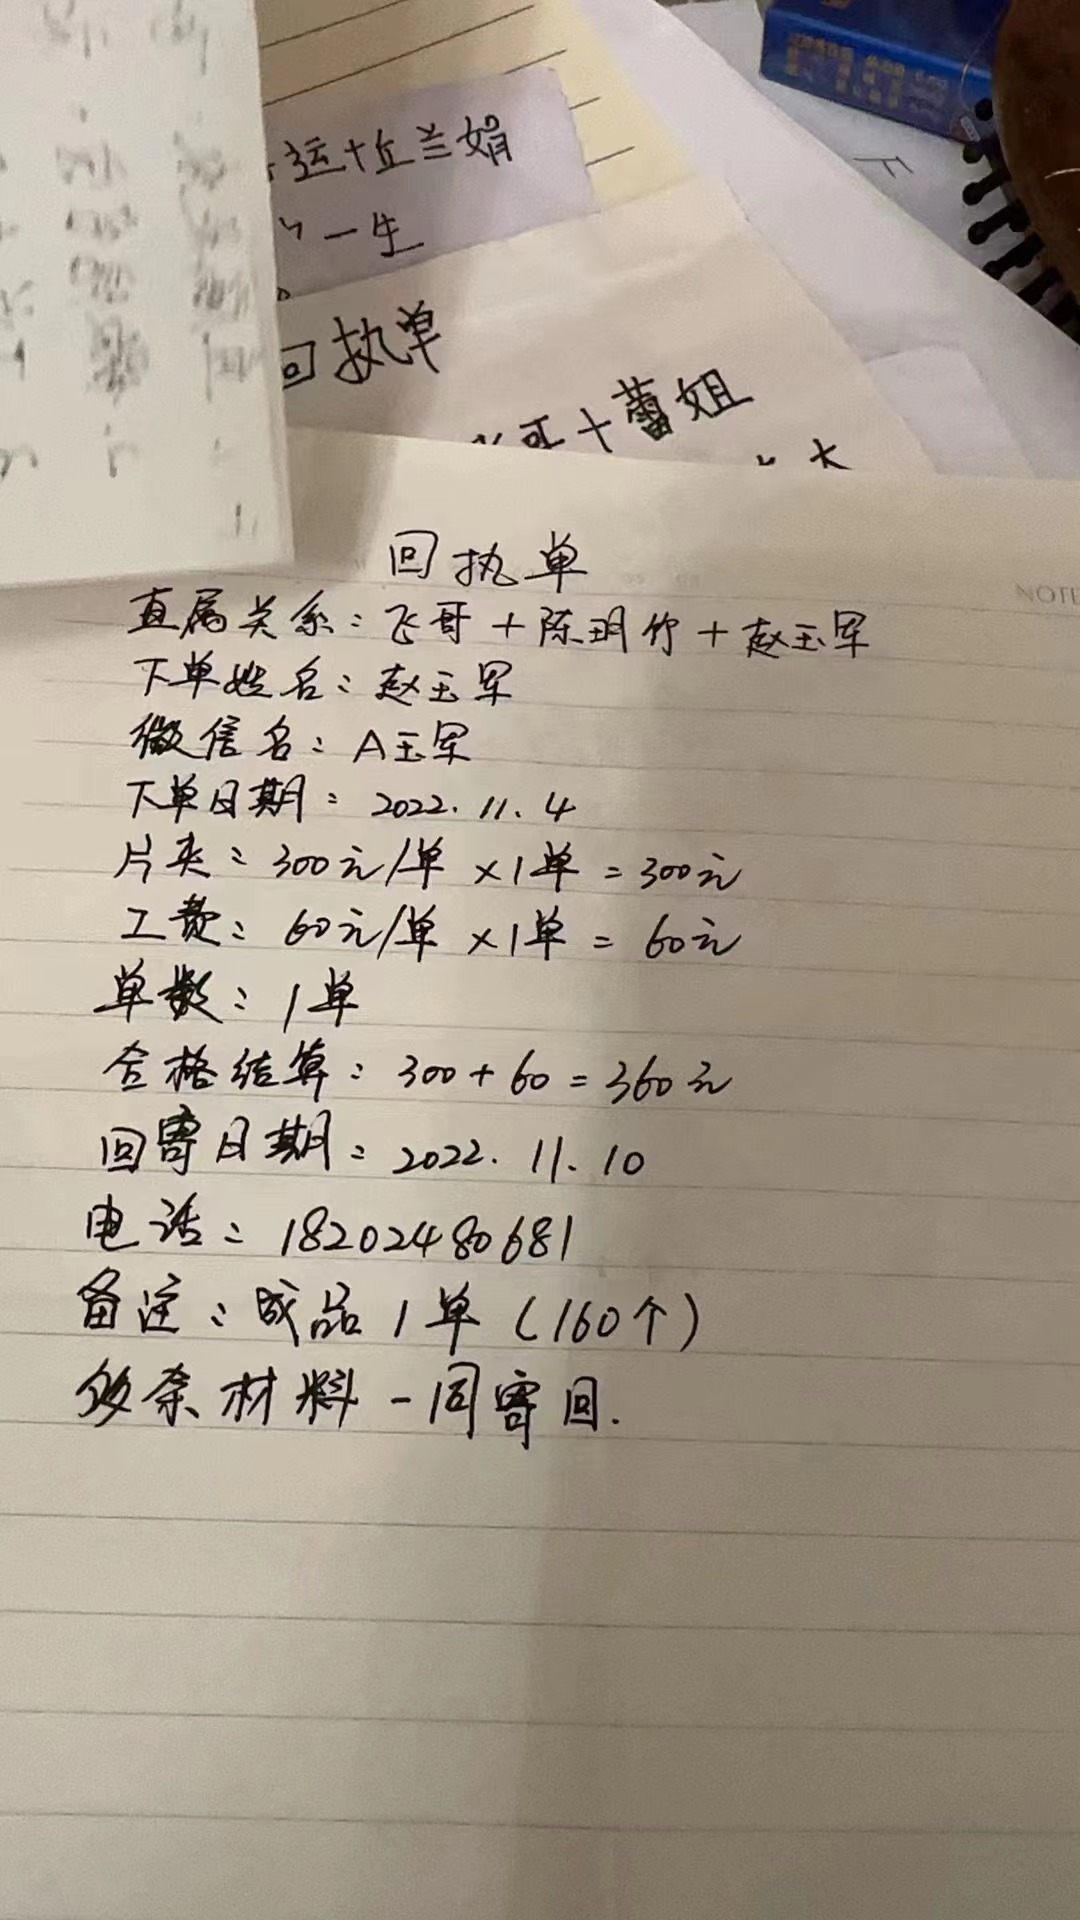 运+丘兰娟
一生
回执单
哥+蕾姐
回执单
直属关系：飞哥+陈玥竹+赵玉军
下单姓名：赵玉军
微信名：A玉军
下单日期：2022.11.4
片夹：300元/单×1单=300元
工费：60元/单×1单=60元
单数：1单
合格结算：300+60=360元
回寄日期：2022.11.10
电话：18202480681
备注：成品1单(160个)
多余材料一同寄回.
NOTE